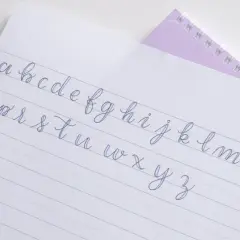 a b c d e f g h i j k l m
r s t u w x y z